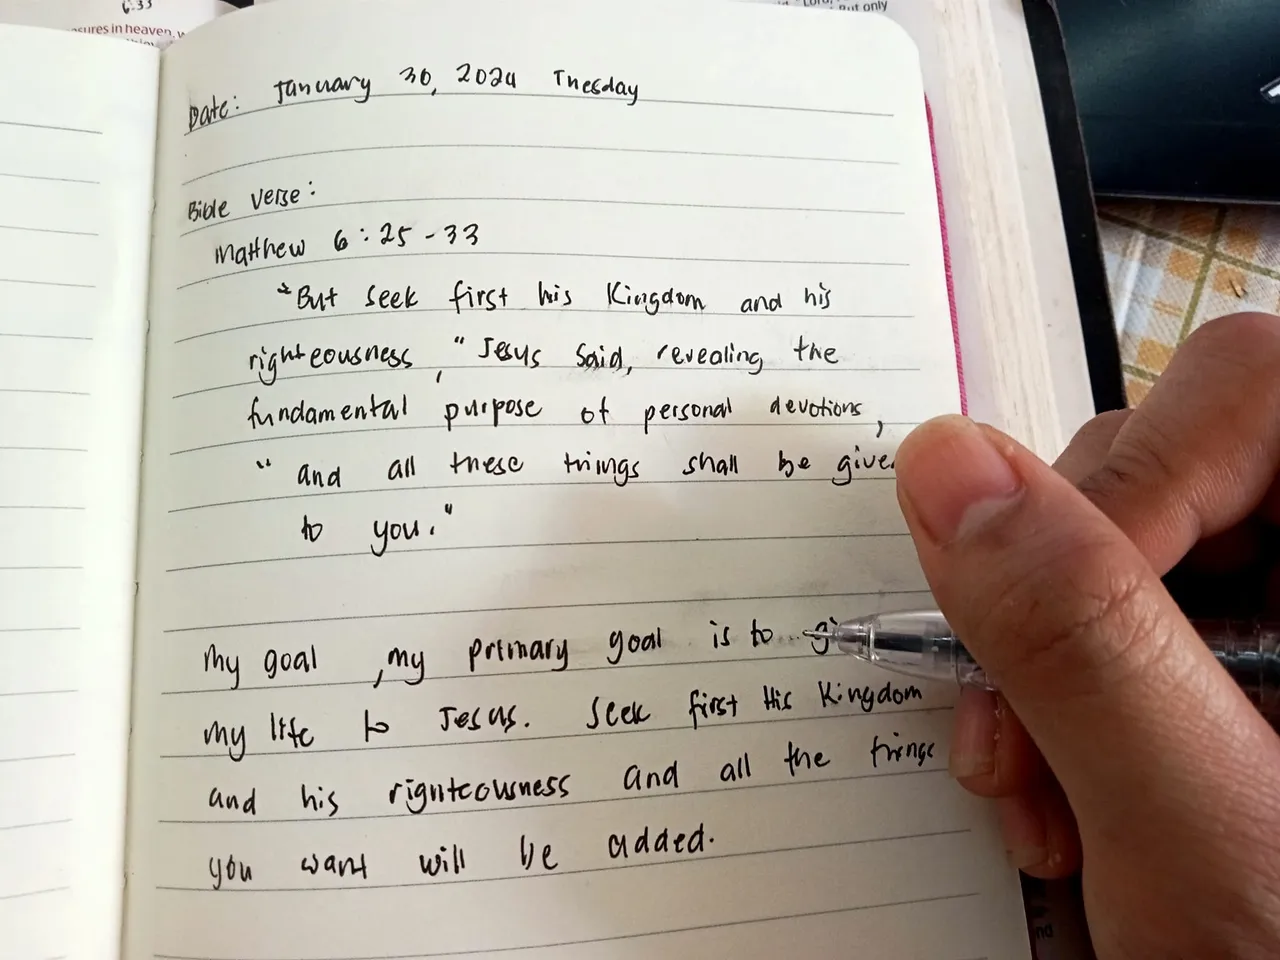 6:33
sures in heaven,
But only
Date: January 30, 2024 Tuesday
Bible Verse:
Matthew 6:25-33
"But seek first his Kingdom and his
righteousness," Jesus said, revealing the
fundamental purpose of personal devotions,
"and all these things shall be give
to you."
My goal, my primary goal is to gi
my life to Jesus. Seek first His Kingdom
and his righteousness and all the things
you want will be added.